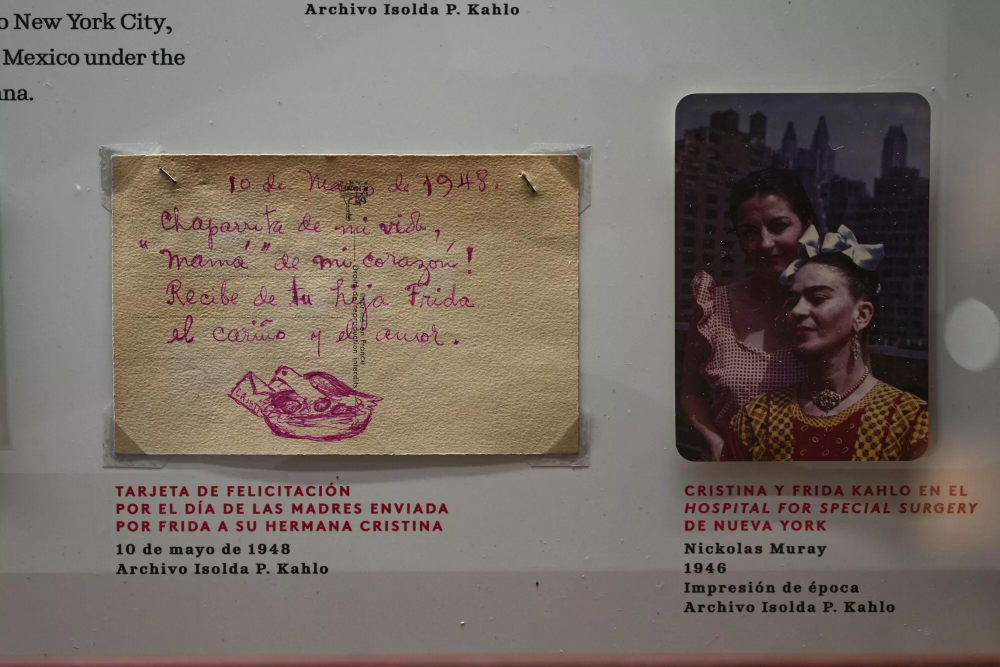 Archivo Isolda P. Kahlo
o New York City,
Mexico under the
na.
10 de Mayo de 1948.
Chaparrita de mi vida,
"Mamá" de mi corazón!
Recibe de tu hija Frida
el cariño y el amor.
TARJETA DE FELICITACIÓN
POR EL DÍA DE LAS MADRES ENVIADA
POR FRIDA A SU HERMANA CRISTINA
10 de mayo de 1948
Archivo Isolda P. Kahlo
CRISTINA Y FRIDA KAHLO EN EL
HOSPITAL FOR SPECIAL SURGERY
DE NUEVA YORK
Nickolas Muray
1946
Impresión de época
Archivo Isolda P. Kahlo